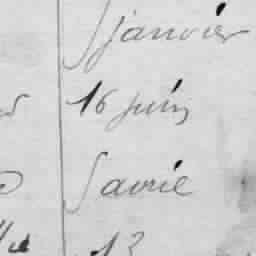 5 janvier
16 juin
5 avril
13